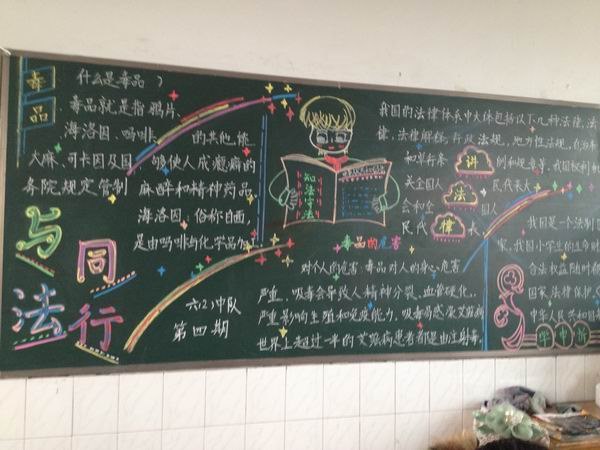 毒品
什么是毒品?
毒品就是指鸦片、
海洛因、吗啡、的其他能
大麻、可卡因及国、够使人成瘾癖的
务院规定管制麻醉和精神药品
海洛因:俗称白面,
是由吗啡
与法同行
六(2)中队
第四期
知法守法
毒品的危害
对个人的危害:毒品对人的身心危害
严重、吸毒会导致人精神分裂、血管硬化,
严重影响生殖和免疫能力、吸毒易感染艾滋病
世界上超过一半的艾滋病患者都是由注射毒,
我国的法律体系中大体包括以下几种法律,法
律、法律解释、行政法规、地方性法规、
讲法律
关全国人民代表大
全国人
民代表
我国是一个法制国
家,我国小学生的生命财
合法权益随时都
国家法律保护《
中华人民共和国